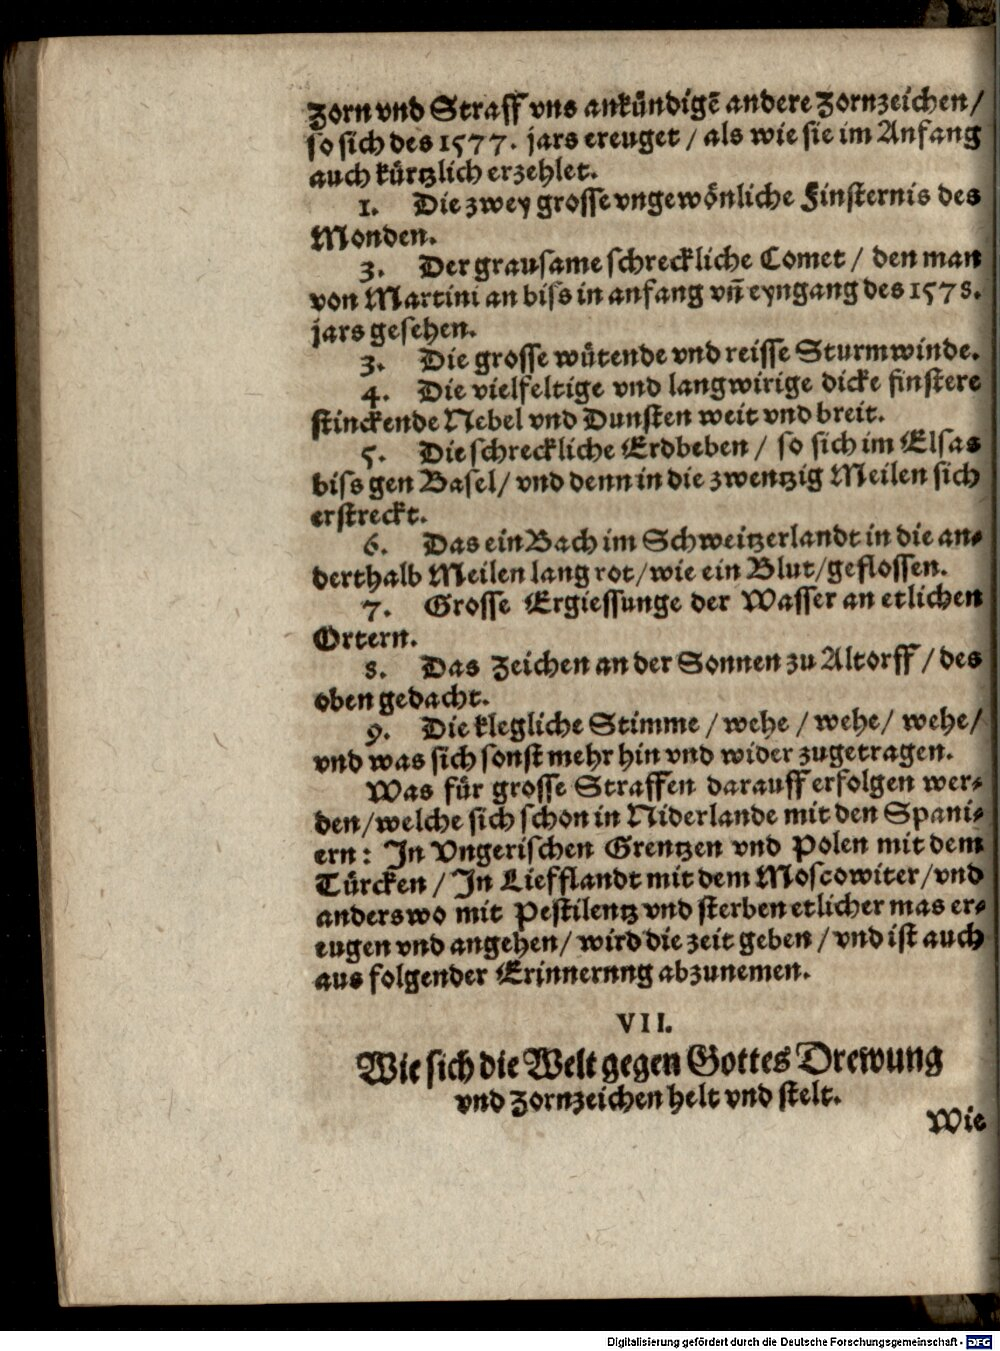 Zorn vnd Straff vns ankündigē andere Zornzeichen/
so sich des 1577. jars ereuget / als wie sie im Anfang
auch kürtzlich erzehlet.
1. Die zwey grosse vngewönliche Finsternis des
Monden.
3. Der grausame schreckliche Comet / den man
von Martini an biss in anfang vn̄ eyngang des 1578.
jars gesehen.
3. Die grosse wütende vnd reisse Sturmwinde.
4. Die vielfeltige vnd langwirige dicke finstere
stinckende Nebel vnd Dunsten weit vnd breit.
5. Die schreckliche Erdbeben / so sich im Elsas
biss gen Basel/ vnd denn in die zwentzig Meilen sich
erstreckt.
6. Das ein Bach im Schweitzerlandt in die an-
derthalb Meilen lang rot/wie ein Blut/geflossen.
7. Grosse Ergiessunge der Wasser an etlichen
Ortern.
8. Das Zeichen an der Sonnen zu Altorff / des
oben gedacht.
9. Die klegliche Stimme / wehe / wehe/ wehe/
vnd was sich sonst mehr hin vnd wider zugetragen.
Was für grosse Straffen darauff erfolgen wer-
den/welche sich schon in Niderlande mit den Spani-
ern: In Vngerischen Grentzen vnd Polen mit dem
Türcken / In Liefflandt mit dem Moscowiter/vnd
anderswo mit Pestilentz vnd sterben etlicher mas er-
eugen vnd angehen/ wird die zeit geben / vnd ist auch
aus folgender Erinnernng abzunemen.
VII.
Wie sich die Welt gegen Gottes Drewung
vnd Zornzeichen helt vnd stelt.
Wie
Digitalisierung gefördert durch die Deutsche Forschungsgemeinschaft - DFG